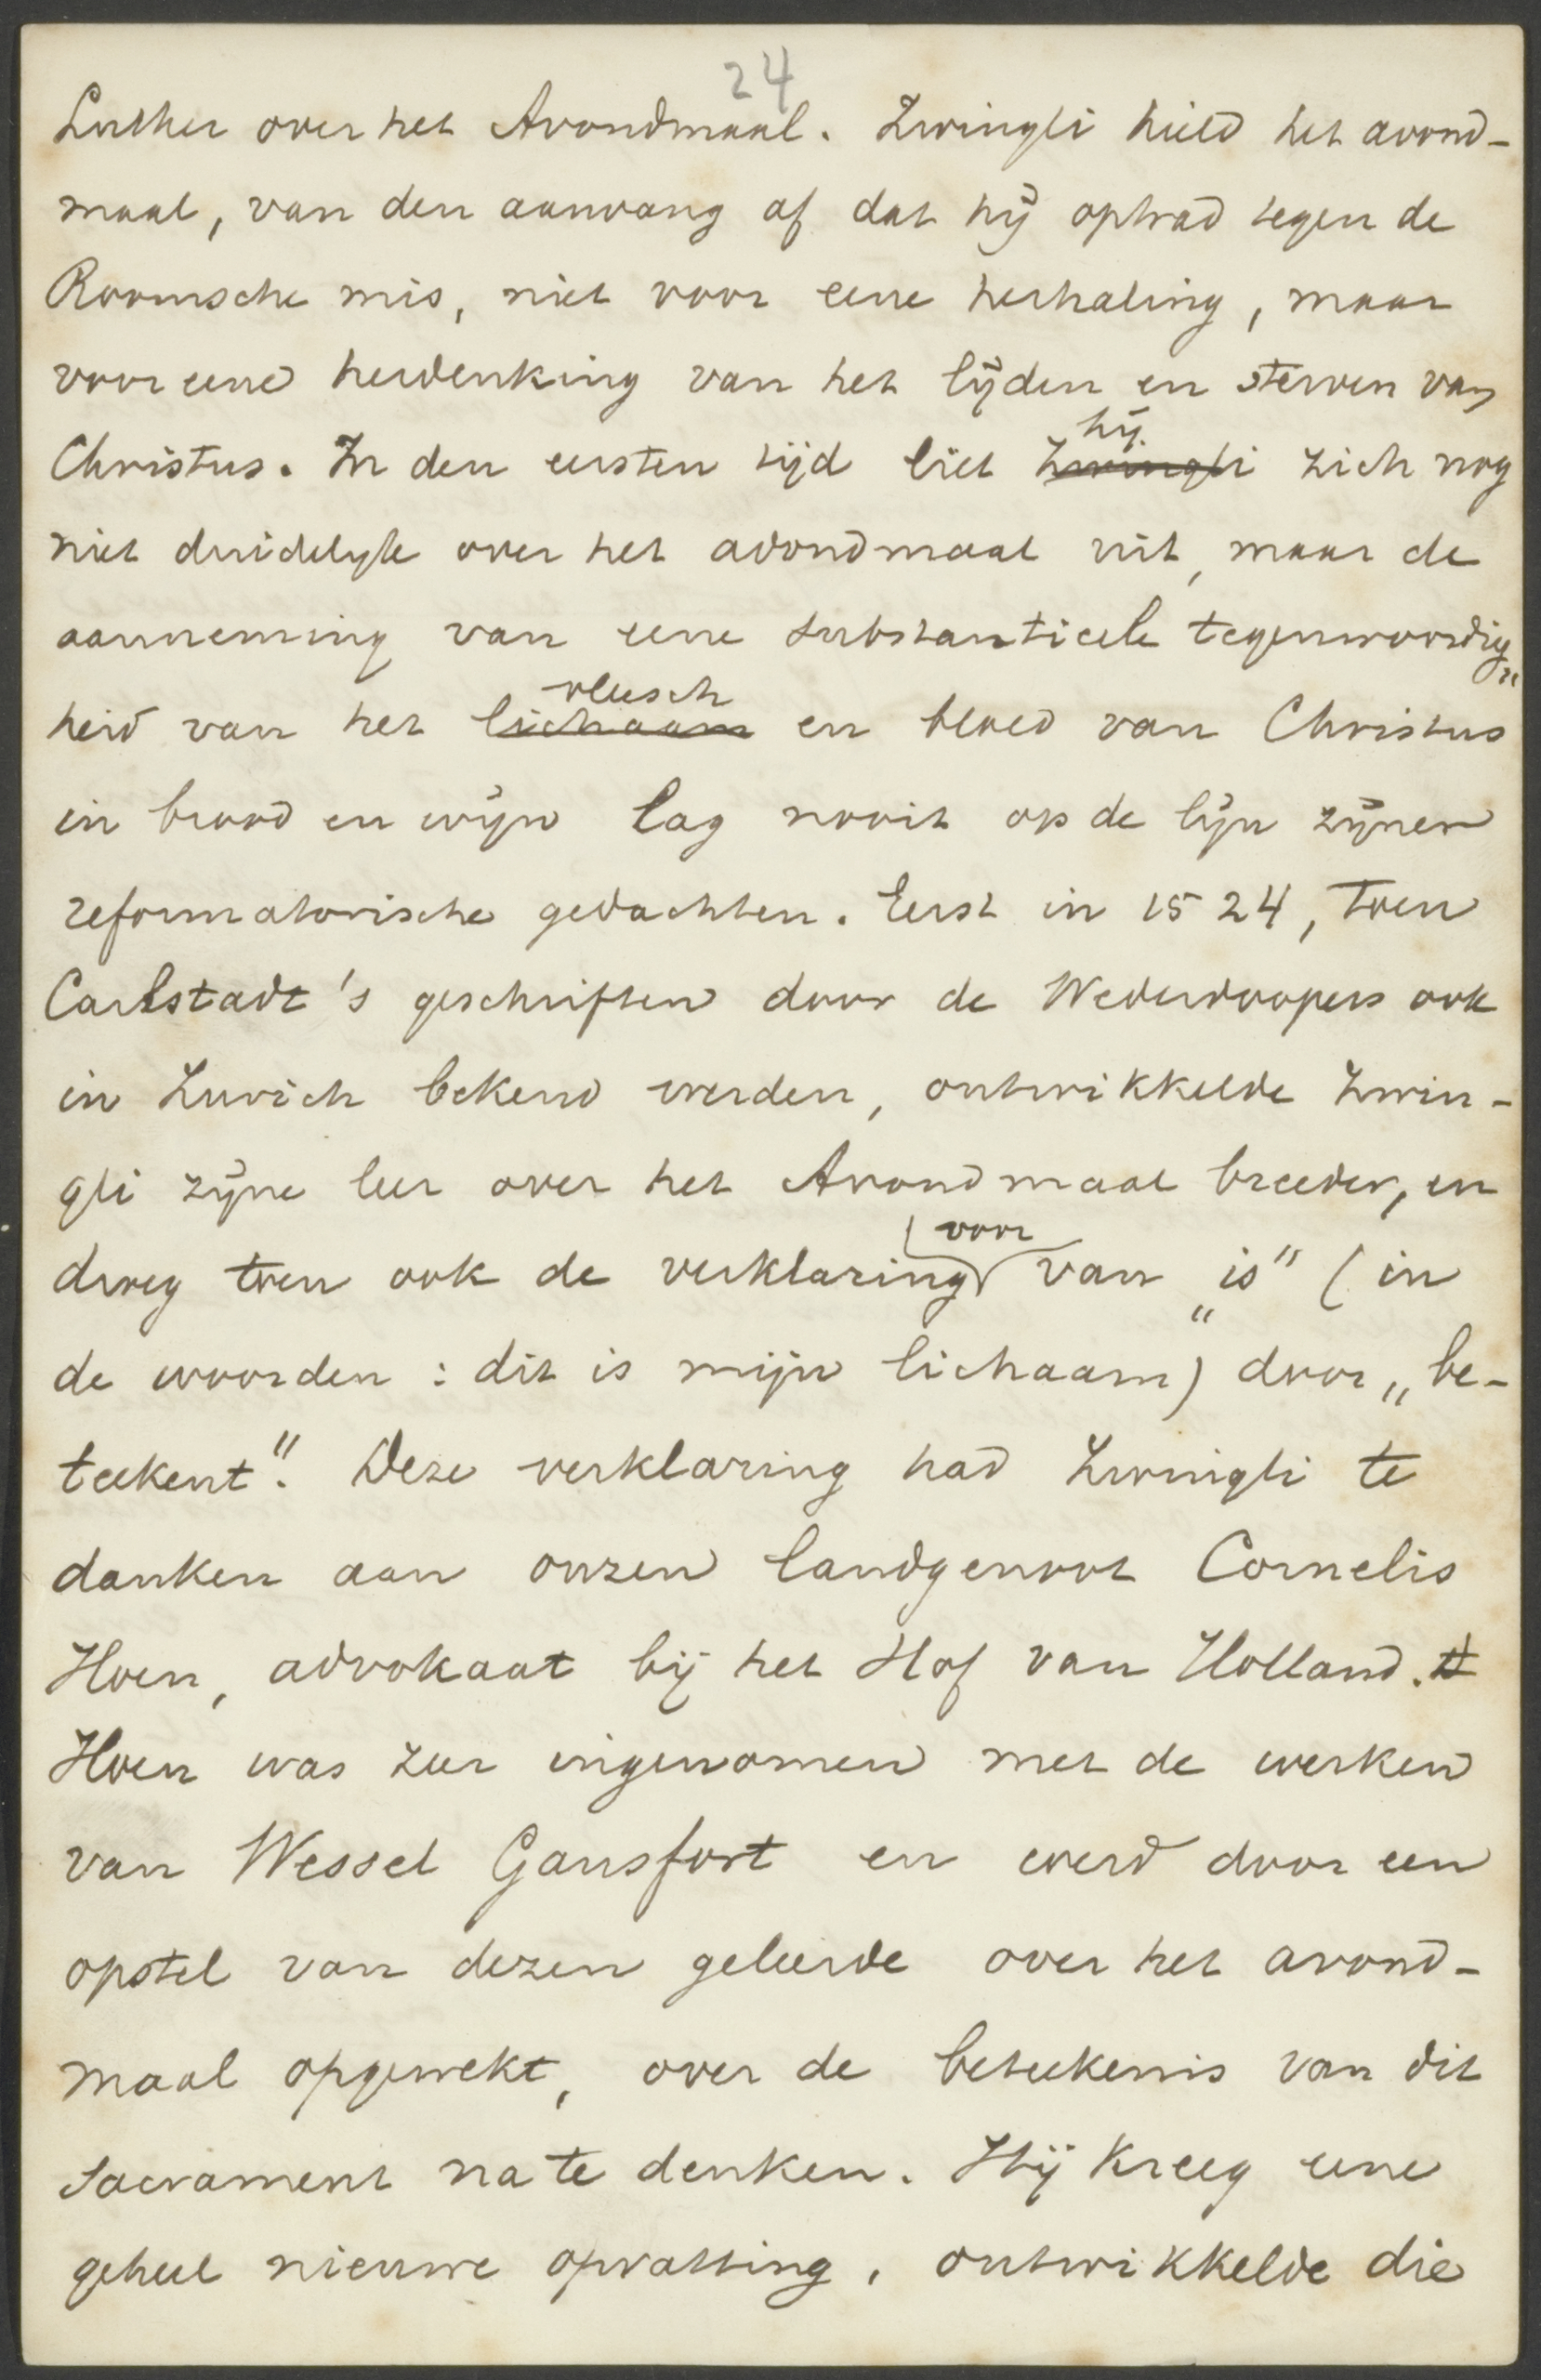 24
Luther over het Avondmaal. Zwingli hield het avond-
maal, van den aanvang af dat hij optrad tegen de
Roomsche mis, niet voor eene herhaling, maar
voor eene herdenking van het lijden en sterven van
hij
Christus. In den eersten tijd liet Zwingli zich nog
niet duidelijk over het avondmaal uit, maar de
aanneming van eene substantieele tegenwoordig„
vleesch
heid van het lichaam en bloed van Christus
in brood en wijn lag nooit op de lijn zijner
reformatorische gedachten. Eerst in 1524, toen
Carlstadt's geschriften door de Wederdoopers ook
in Zurich bekend werden, ontwikkelde Zwin-
gli zijne leer over het Avondmaal breeder, en
voor
droeg toen ook de verklaring van „is" (in
de woorden: dit is mijn lichaam) door „be-
teekent". Deze verklaring had Zwingli te
danken aan onzen landgenoot Cornelis
Hoen, advokaat bij het Hof van Holland.
Hoen was zeer ingenomen met de werken
van Wessel Gansfort en werd door een
opstel van dezen geleerde over het avond-
maal opgewekt, over de beteekenis van dit
Sacrament na te denken. Hij kreeg eene
geheel nieuwe opvatting, ontwikkelde die